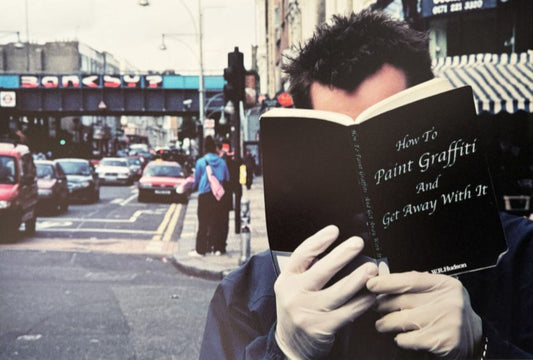 BANKSY?
How To
Paint Graffiti
And
Get Away With It
W.R.Hudson
How To Paint Graffiti And Get Away With It